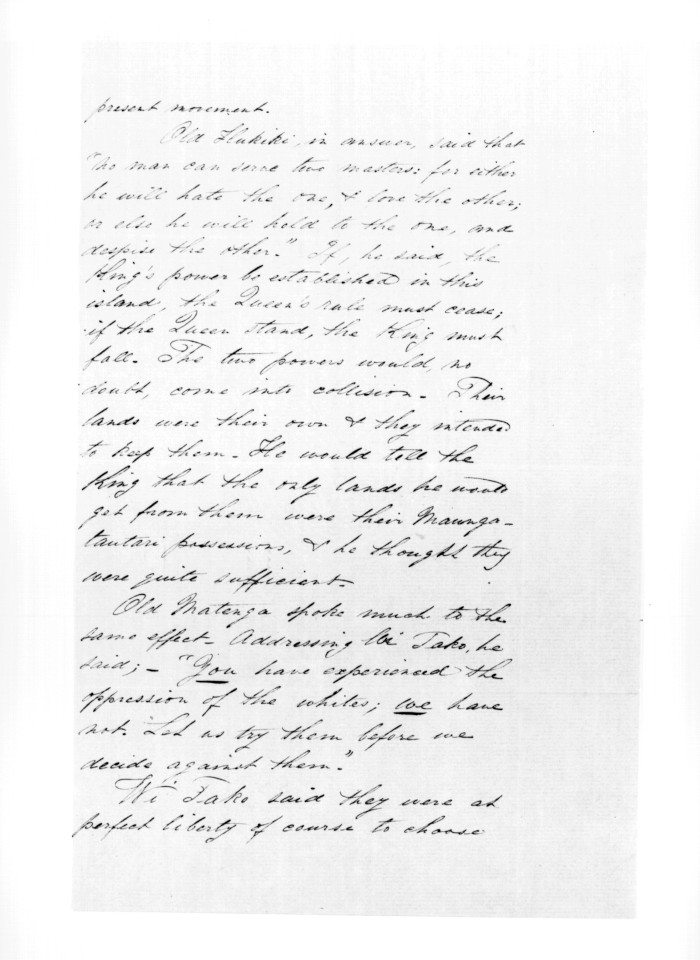 present movement.
Old Hukiki, in answer, said that
"no man can serve two masters: for either
he will hate the one, & love the other;
or else he will hold to the one, and
despise the other." If, he said, the
King's power be established in this
island, the Queen's rule must cease;
if the Queen stand, the King must
fall. The two powers would, no
doubt, come into collision. Their
lands were their own & they intended
to keep them. He would tell the
King that the only lands he would
get from them were their Maunga-
tautari possessions, & he thought they
were quite sufficient.
Old Matenga spoke much to the
same effect. Addressing Wi Tako, he
said; - "You have experienced the
oppression of the whites; we have
not. Let us try them before we
decide against them."
Wi Tako said they were at
perfect liberty of course to choose